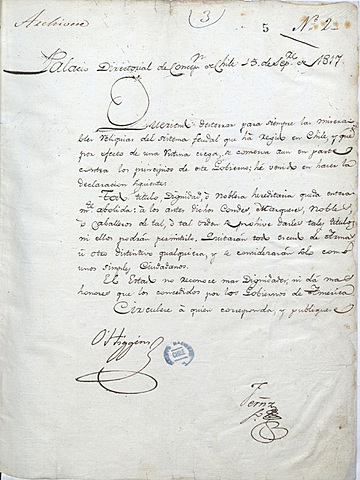 Archivese
3
5
Nº 2
Palacio Directorial de Concepn. de Chile 13. de Sepre. de 1817.
Queriendo desterrar para siempre las misera-
bles reliquias del sistema feudal que ha regido en Chile, y que
por efecto de una rutina ciega, se conserva aun en parte
contra los principios de este Gobierno; he venido en hacer la
declaracion siguiente.
Todo titulo, Dignidad, ó Nobleza hereditaria queda entera-
mte. abolida: a los antes dichos Condes, Marqueses, Nobles
ó Caballeros de tal, ó tal orden se prohive darles tales titulos
ni ellos podrán permitirlo. Quitarán todo escudo de Armas
ú otro distintivo qualquiera, y se considerarán solo como
unos simples Ciudadanos.
El Estado no reconoce mas Dignidades, ni dá mas
honores que los concedidos por los Gobiernos de America.
Circulese a quien corresponda, y publiquese
O'Higgins
CHILE